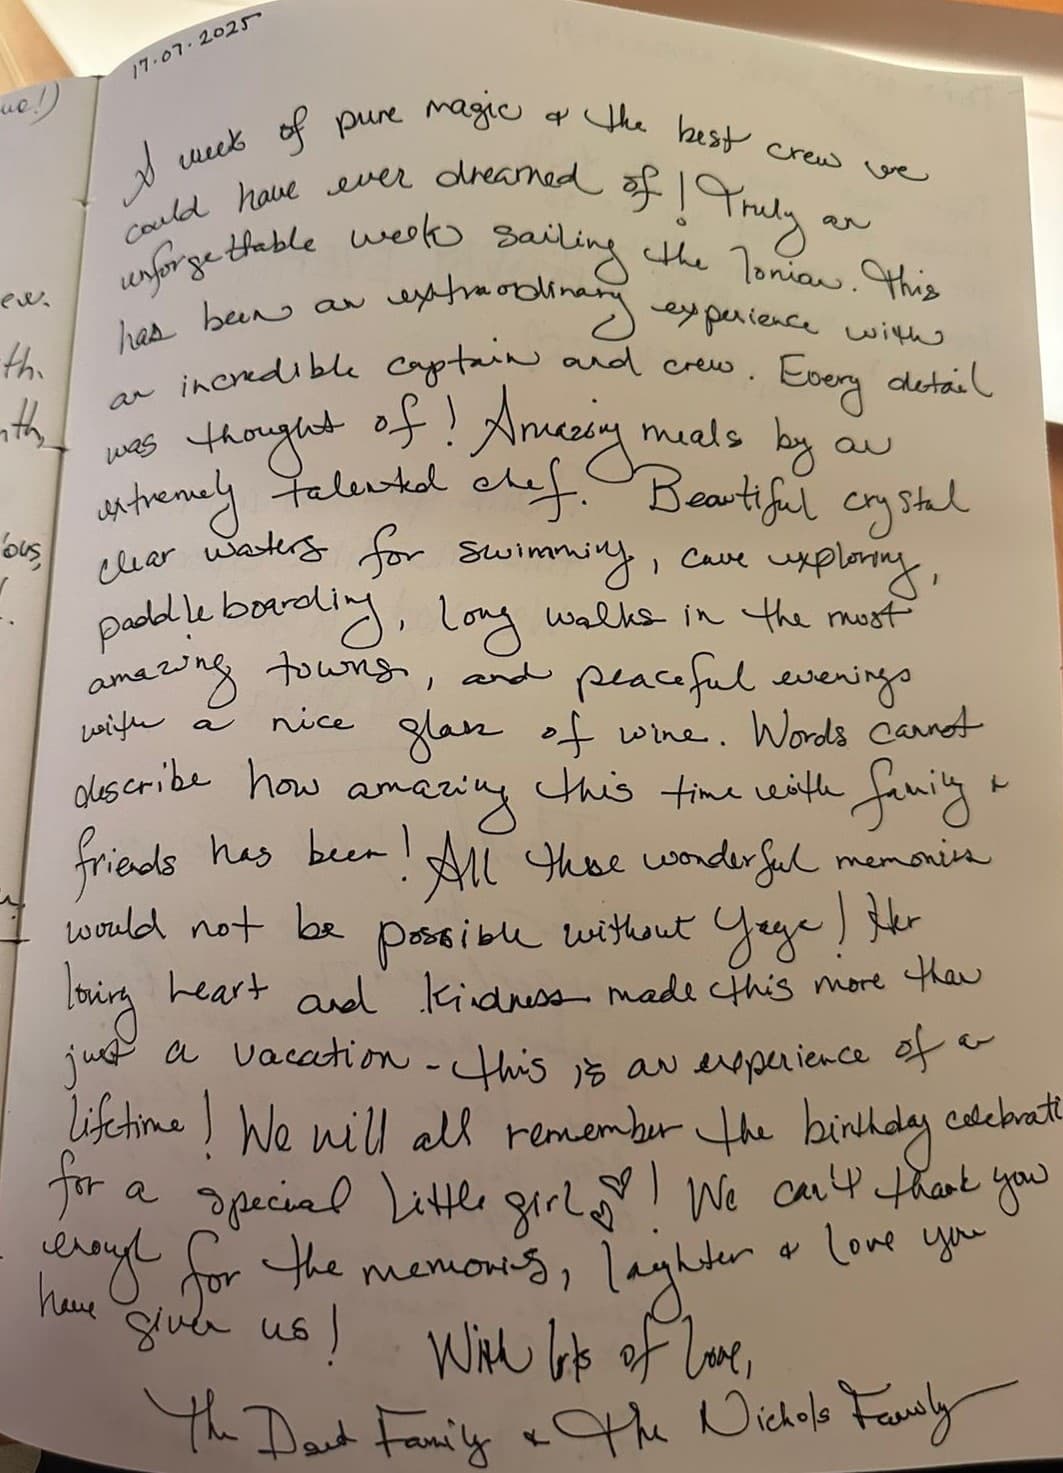 17.07.2025
A week of pure magic & the best crew we
could have ever dreamed of! Truly an
unforgettable week sailing the Ionian. This
has been an extraordinary experience with
an incredible captain and crew. Every detail
was thought of! Amazing meals by an
extremely talented chef. Beautiful crystal
clear waters for swimming, cave exploring,
paddleboarding, long walks in the most
amazing towns, and peaceful evenings
with a nice glass of wine. Words cannot
describe how amazing this time with family &
friends has been! All these wonderful memories
would not be possible without! Her
loving heart and kindness made this more than
just a vacation - this is an experience of a
lifetime! We will all remember the birthday celebrati
for a special little girl! We can't thank you
enough for the memories, laughter & love you
have given us!
With lots of love,
The Family & The Nichols Family
ue!)
ew.
th.
nth,
ous,